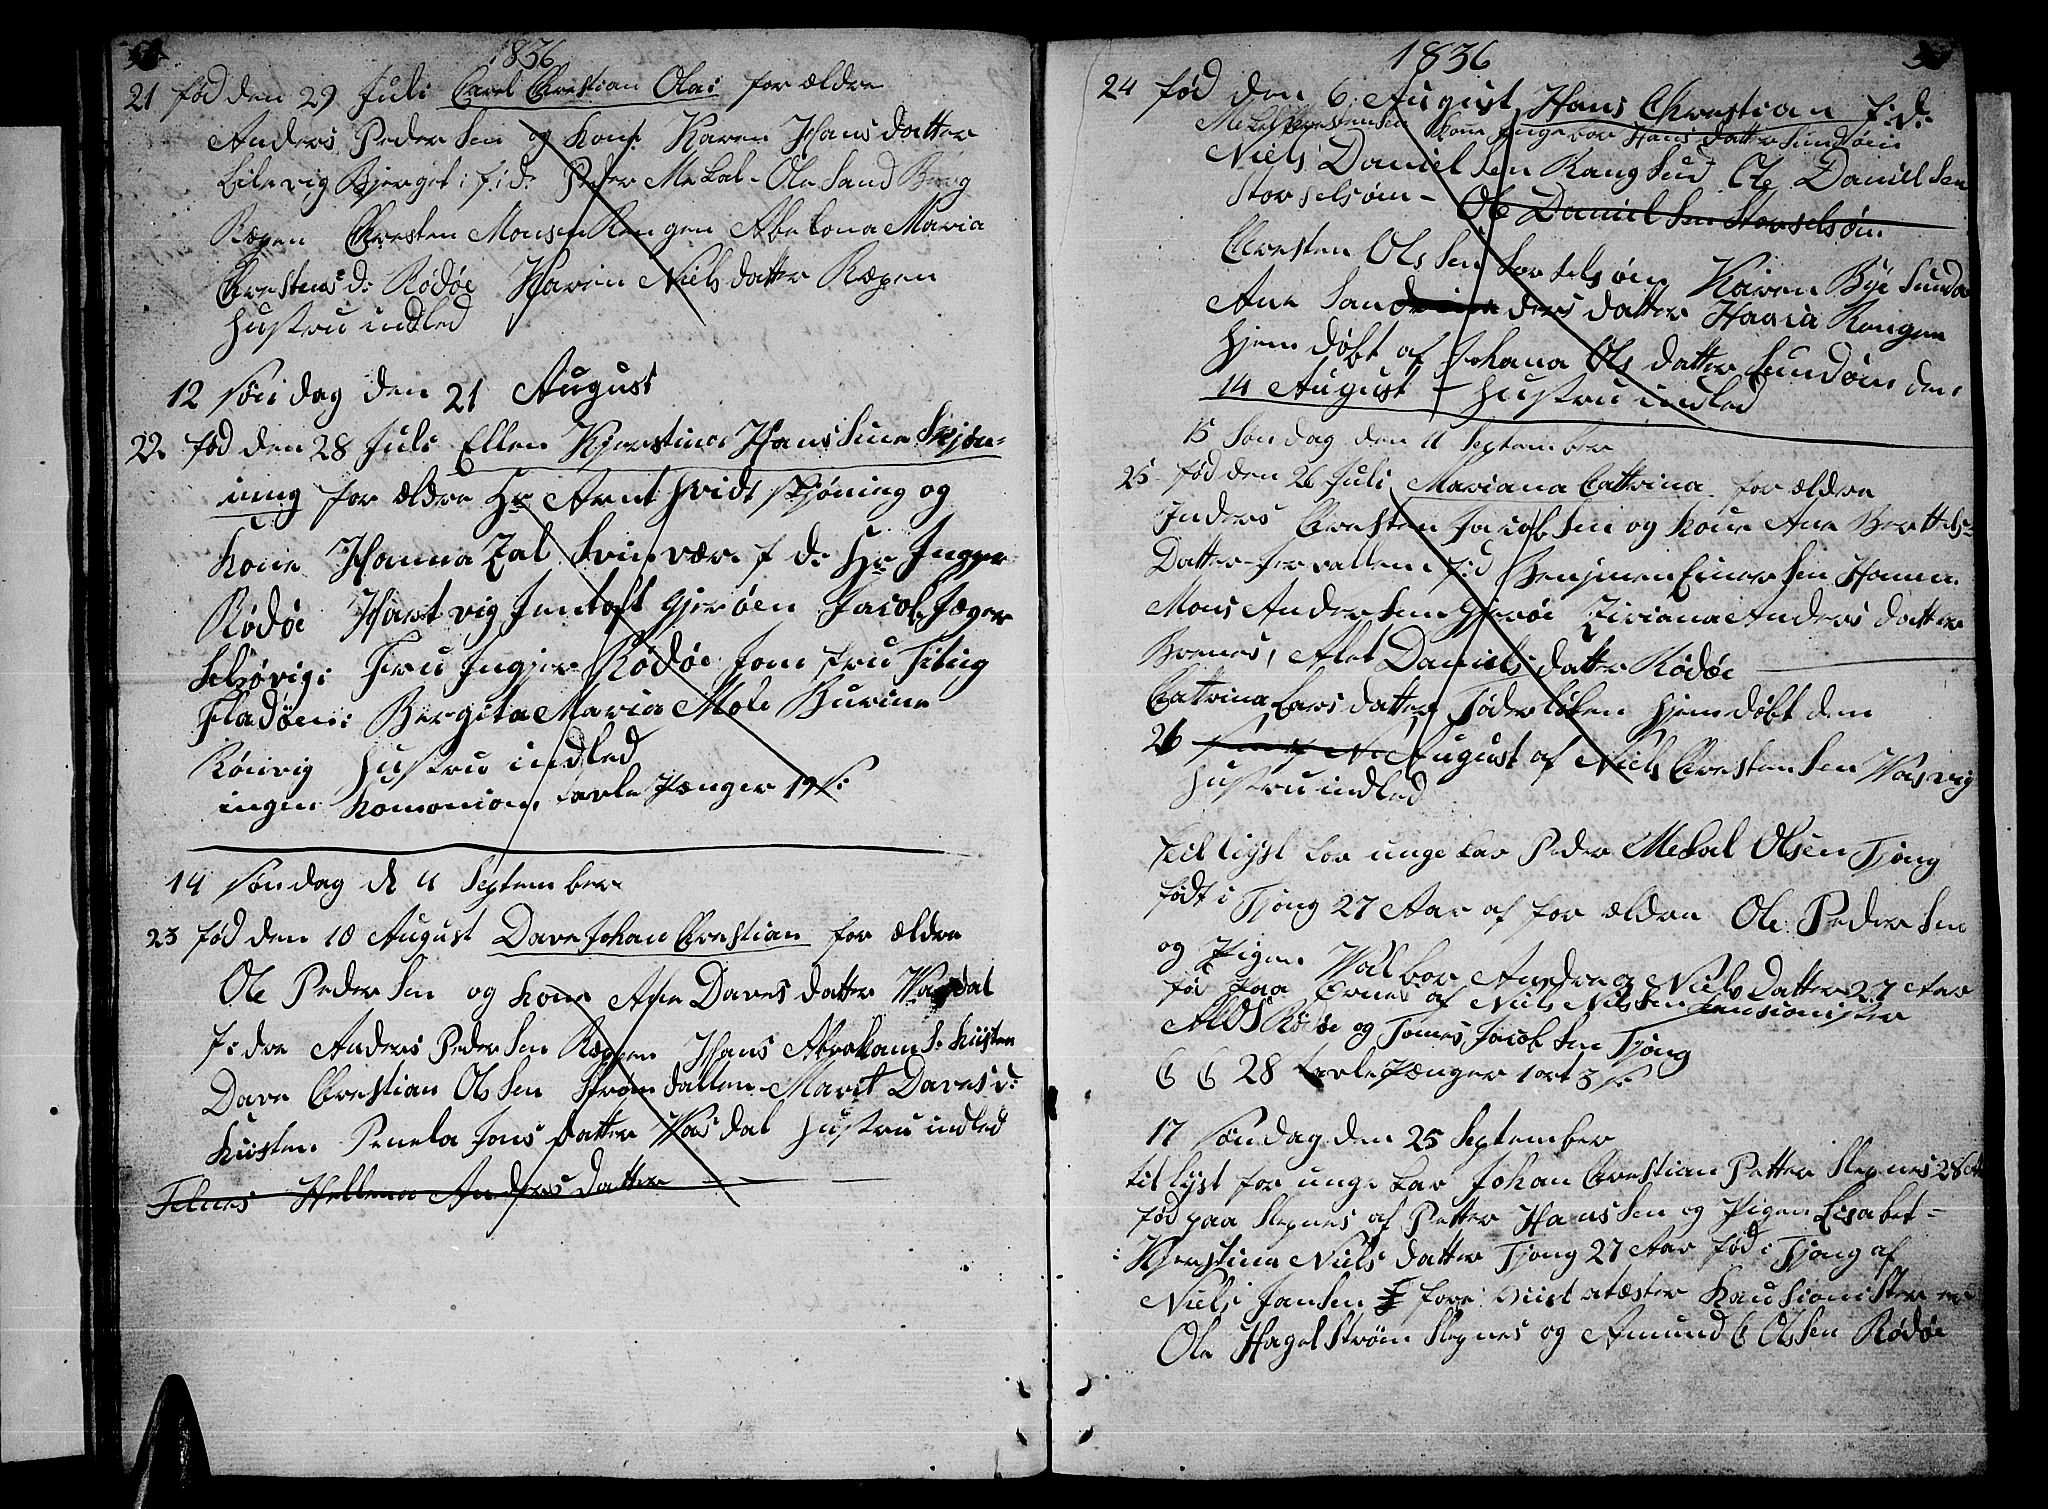 1836
21 fød den 29 Juli Carel Chrestian Olai for ældre
Anders Peder Sen og Kone Karen Hans datter
Lilevig Bjerget: f: d: Peder Mekal - Ole Sand Berg
Ræpen Chresten Monsen Rengen Abelona Maria
Chrestens d: Rødøe Karen Niels datter Ræpen
Hustru indled
12 Søndag den 21 August
22. fød den 28 Juli Ellen Kjerstina Hans Sine Skjøn-
ning for ældre Hr Arnt Hvidt Skjøning og
Kone Hanna Zal Svinvær f d: Hr Ingjer
Rødøe Hartvig Jentoft Gjerøen Jacob Jæger
Selsøvig: Fru Ingjer Rødøe Jomfru Ting
Fladøen: Bergita Maria Moli Burine
Rønvig Hustru indled
ingen Komonion, tavle Penger 19 s:
14 Søndag d 4 September
23 fød den 10 August Dave Johan Chrestian for ældre
Ole Peder Sen og Kone Ane Daves datter Vasdal
f: dre Anders Peder Sen Ræppen Hans Abraham S: Kiisten
Dave Chrestian Ols Sen Strøm dallen Marit Daves d:
Kiisten Penela Jons datter Vas dal Hustru indled
Telnes Hellena Anders datter
1836
24 fød den 6 August Hans Chrestian f: d:
Mekal Chrestensen Kone Ingebor Hans datter Sundøen
Niels Daniel Sen Rang Sund Ole Daniel Sen
Storselsøen - Ole Daniel Sen Storselsøen
Chresten Ols Sen Sor selsøen Karen Bye Sundø
Ane Sand ders datter Haaria Rengen
Hjem døbt af Johana Ols datter Sundøen den
14 August - Hustru indled
15 Søndag den 11 September
25 fød den 26 Juli Mariana Cattrina for ældre
Inders Chresten Jacob Sen og Kone Ane Bertels-
Datter Jervallen: f: d Benjmen Einer Sen Hamn
Mons Ander Sen Gjerøe Ziviana Anders datter
Brenes, Alet Daniels datter Rødøe
Cattrina Lars datter Jøderløken Hjem døbt den
26 August af Niels Chresten Sen Vasvig
Hustru indled
til lyst for unge kar Peder Mekal Olsen Tjong
født i Tjong 27 Aar af for ældre Ole Peder Sen
og Pigen Valbor Andrea Niels Datter 27 Aar
fød paa Ørnes af Niels Nils Sen Kausionister
Rødøe og Tomes Jacob Sen Tjong
6 6 28 tavle Penger 1 ort 3 s:
17 Søndag den 25 September
til lyst for unge kar Johan Chrestian Petter Slepnes 28 Aar
fød paa Slepnes af Petter Hans Sen og Pigen Lisabet -
Kjerstina Niels datter Tjong 27 Aar fød i Tjong af
Niels Jansen fore viist atæster Kausionister er
Ole Hagel Strøm Slepnes og Amund Olsen Rødøe